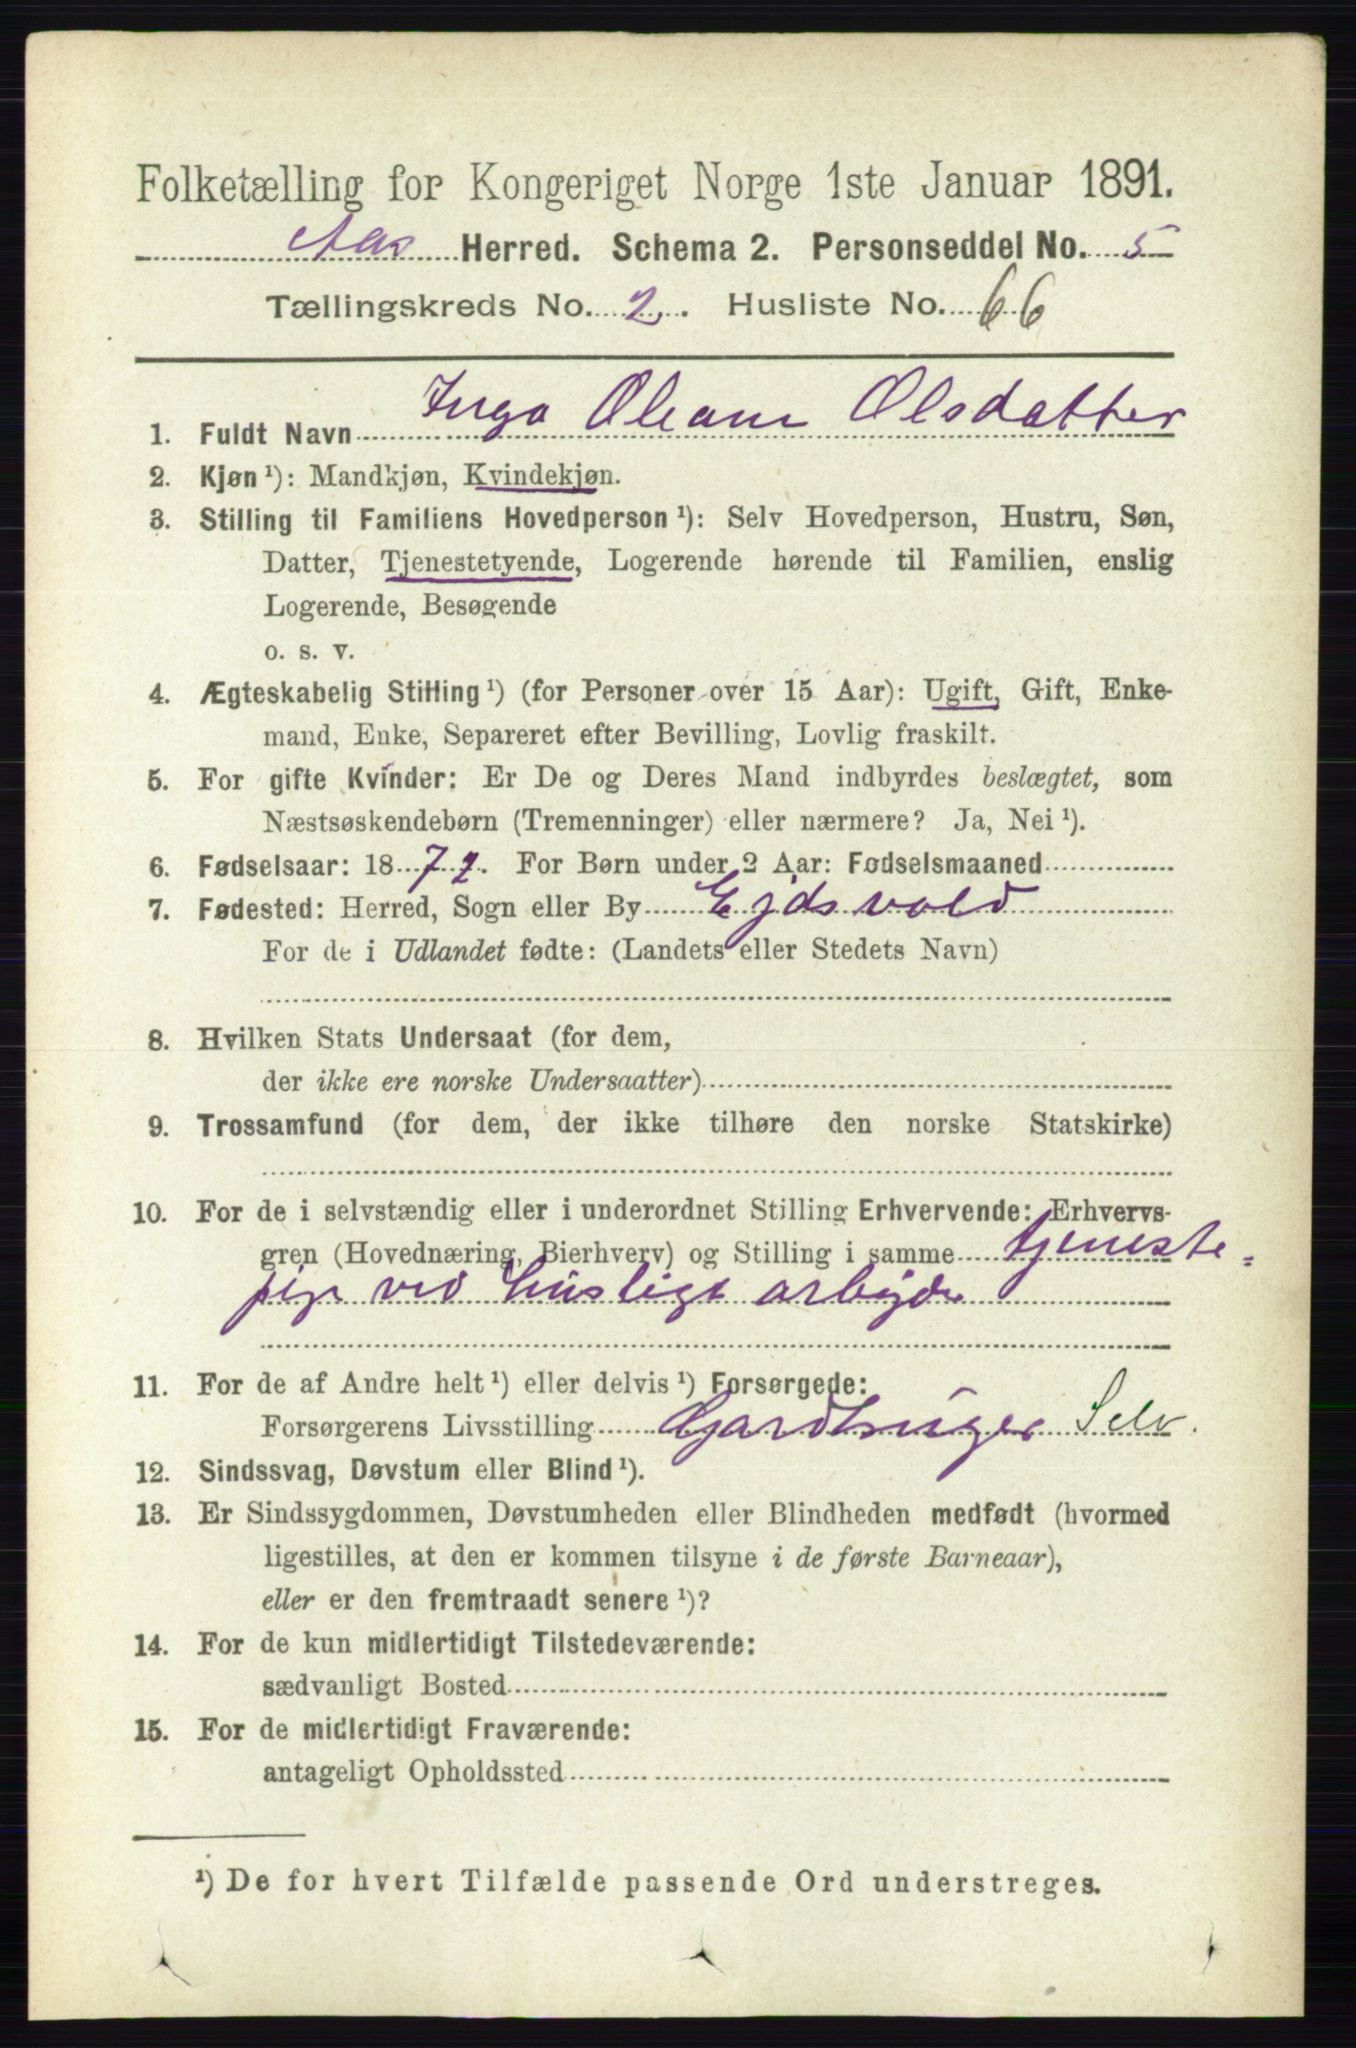 Folketælling for Kongeriget Norge 1ste Januar 1891.
Aas Herred. Schema 2. Personseddel No. 5
Tællingskreds No. 2. Husliste No. 66
1. Fuldt Navn Inga Oleane Olsdatter
2. Kjøn ¹): Mandkjøn, Kvindekjøn.
3. Stilling til Familiens Hovedperson ¹): Selv Hovedperson, Hustru, Søn,
Datter, Tjenestetyende, Logerende hørende til Familien, enslig
Logerende, Besøgende
o. s. v.
4. Ægteskabelig Stilling ¹) (for Personer over 15 Aar): Ugift, Gift, Enke-
mand, Enke, Separeret efter Bevilling, Lovlig fraskilt.
5. For gifte Kvinder: Er De og Deres Mand indbyrdes beslægtet, som
Næstsøskendebørn (Tremenninger) eller nærmere? Ja, Nei ¹).
6. Fødselsaar: 1872. For Børn under 2 Aar: Fødselsmaaned
7. Fødested: Herred, Sogn eller By Ejdsvold
For de i Udlandet fødte: (Landets eller Stedets Navn)
8. Hvilken Stats Undersaat (for dem,
der ikke ere norske Undersaatter)
9. Trossamfund (for dem, der ikke tilhøre den norske Statskirke)
10. For de i selvstændig eller i underordnet Stilling Erhvervende: Erhvervs-
gren (Hovednæring, Bierhverv) og Stilling i samme tjeneste=
pige ved huslige arbejde
11. For de af Andre helt ¹) eller delvis ¹) Forsørgede:
Forsørgerens Livsstilling Gardbruger Selv.
12. Sindssvag, Døvstum eller Blind ¹).
13. Er Sindssygdommen, Døvstumheden eller Blindheden medfødt (hvormed
ligestilles, at den er kommen tilsyne i de første Barneaar),
eller er den fremtraadt senere ¹)?
14. For de kun midlertidigt Tilstedeværende:
sædvanligt Bosted
15. For de midlertidigt Fraværende:
antageligt Opholdssted
¹) De for hvert Tilfælde passende Ord understreges.